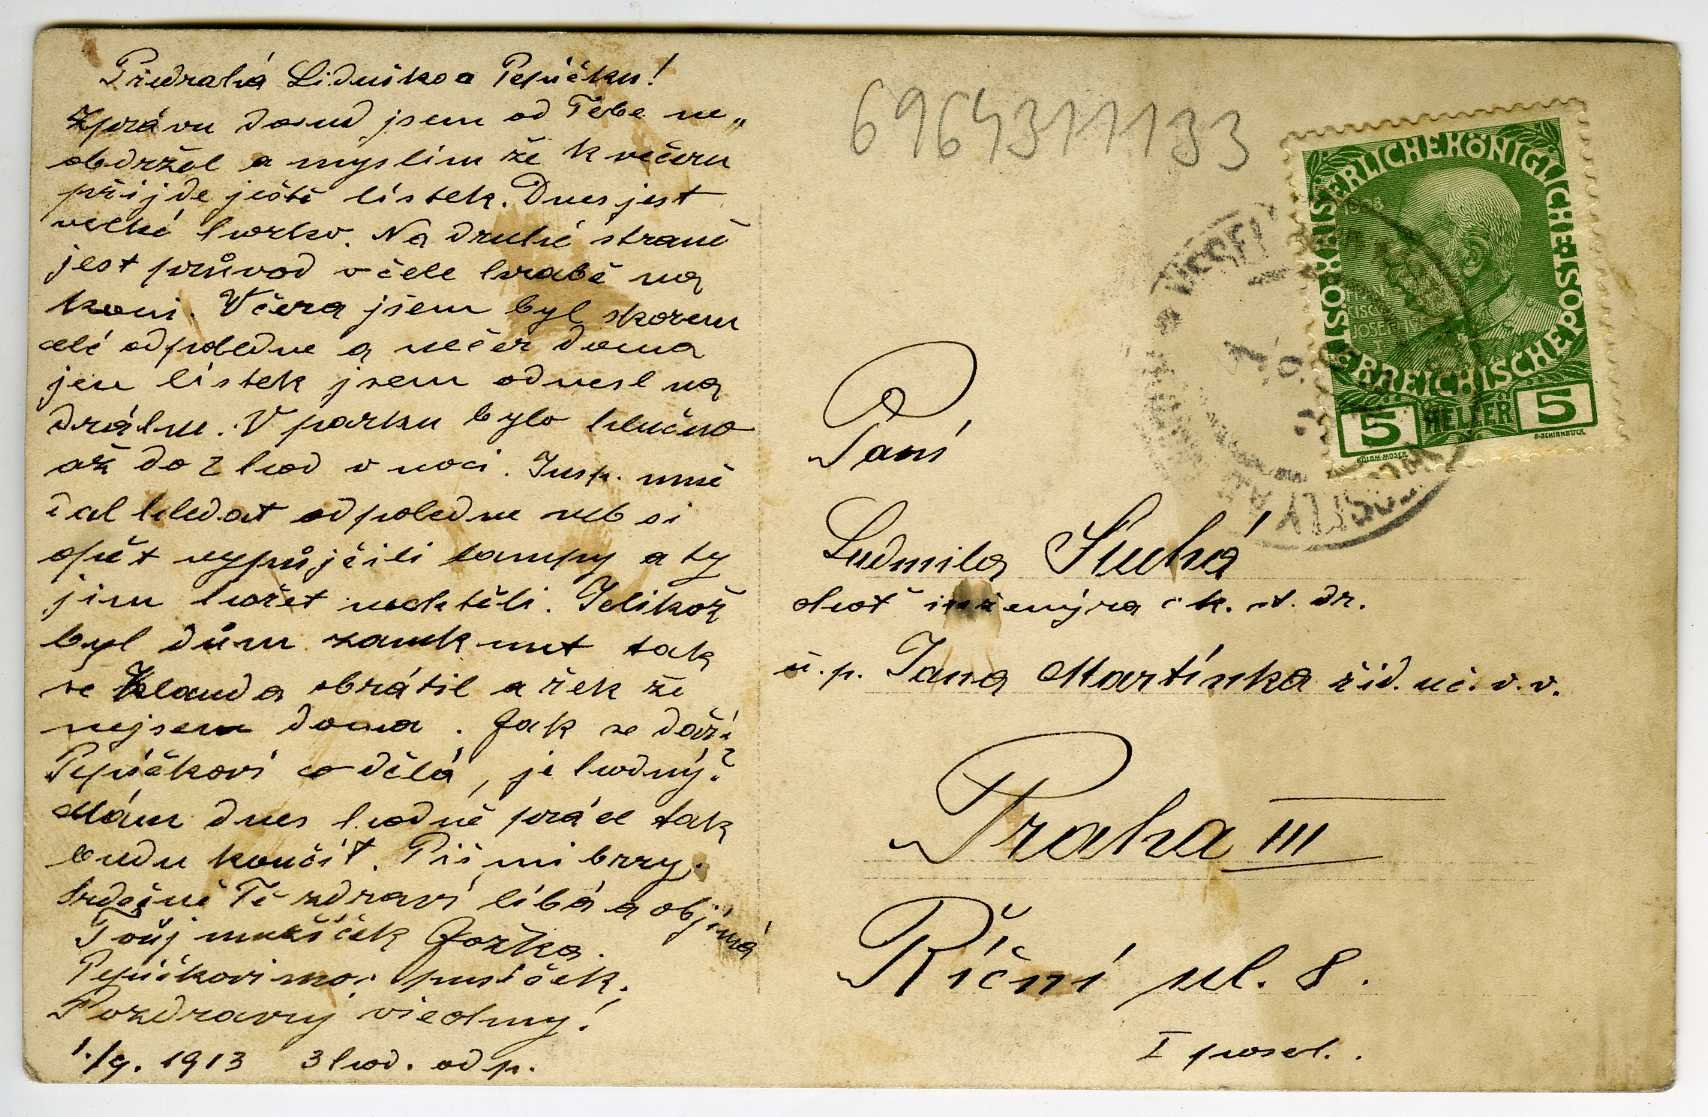 Předrahá Liduško a Pepíčku!
Zprávu dosud jsem od Tebe ne„
obdržel a myslím že k večeru
přijde ještě lístek. Dnes jest
velké horko. Na druhé straně
jest průvod v čele hrabě na
koni. Včera jsem byl skorem
celé odpoledne a večer doma
jen lístek jsem odnesl na
dráhu. V parku bylo hlučno
až do 2 hod v noci. Insp. mně
dal hledat odpoledne neb si
opět vypůjčili lampy a ty
jim hořet nechtěli. Jelikož
byl dům zamknut tak
se Klanda obrátil a řek že
nejsem doma. Jak se daří
Pepíčkovi co dělá, je hodný?
Mám dnes hodně práce tak
budu končit. Piš mi brzy.
Srdečně Tě zdraví líbá a objímá
Tvůj mužíček Jožka.
Pepíčkovi moc pusiček.
Pozdravuj všechny!
1./9. 1913 3 hod. odp.
6964311133
KAISERLICHE KÖNIGLICHE ÖSTERREICHISCHE POST
1908
5 HELLER 5
Paní
Ludmila Suchá
choť inženýra c k. st. dr.
u. p. Jana Martínka říd. uč. v. v.
Praha III
Říční ul. 8.
I poschl..